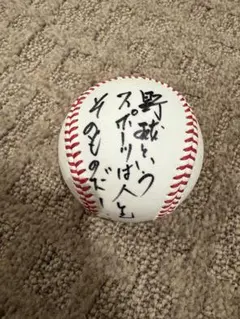 野球という
スポーツは人生
そのものだ!